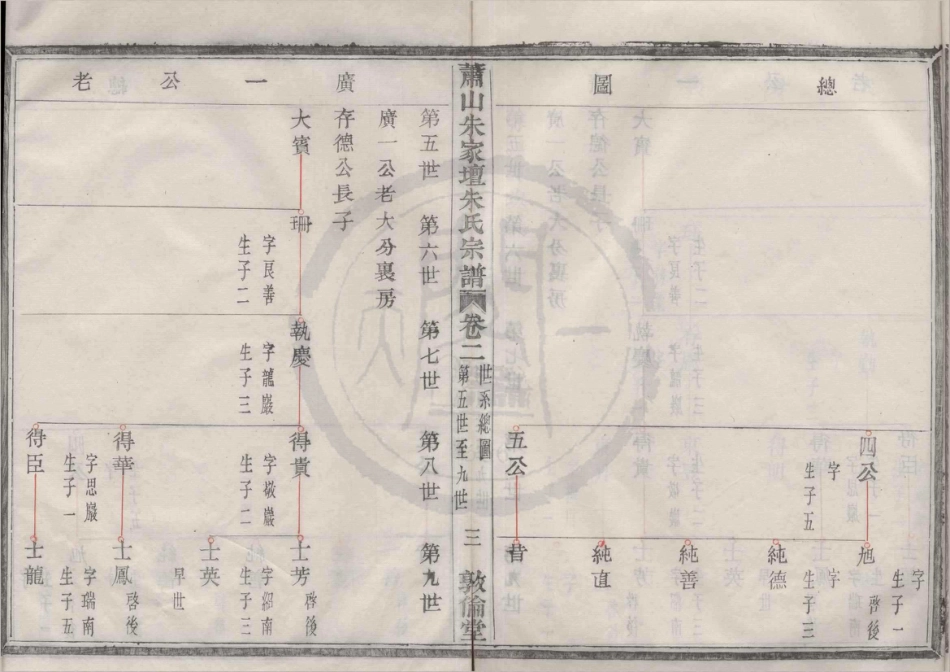 總圖
四公
字
生子五
五公
旭
字
生子一
啓後
純德
字
生子三
純善
純直
昔
蕭山朱家壇朱氏宗譜
卷二
世系總圖
第五世至九世
三
敦倫堂
廣一公老
第五世
第六世
第七世
第八世
第九世
廣一公老大分裏房
存德公長子
大賓
珊
字艮善
生子二
執慶
字龍巖
生子三
得貴
字敬巖
生子二
得華
字思巖
生子一
得臣
士芳
啓後
字紹南
生子三
士英
早世
士鳳
啓後
字瑞南
生子五
士龍